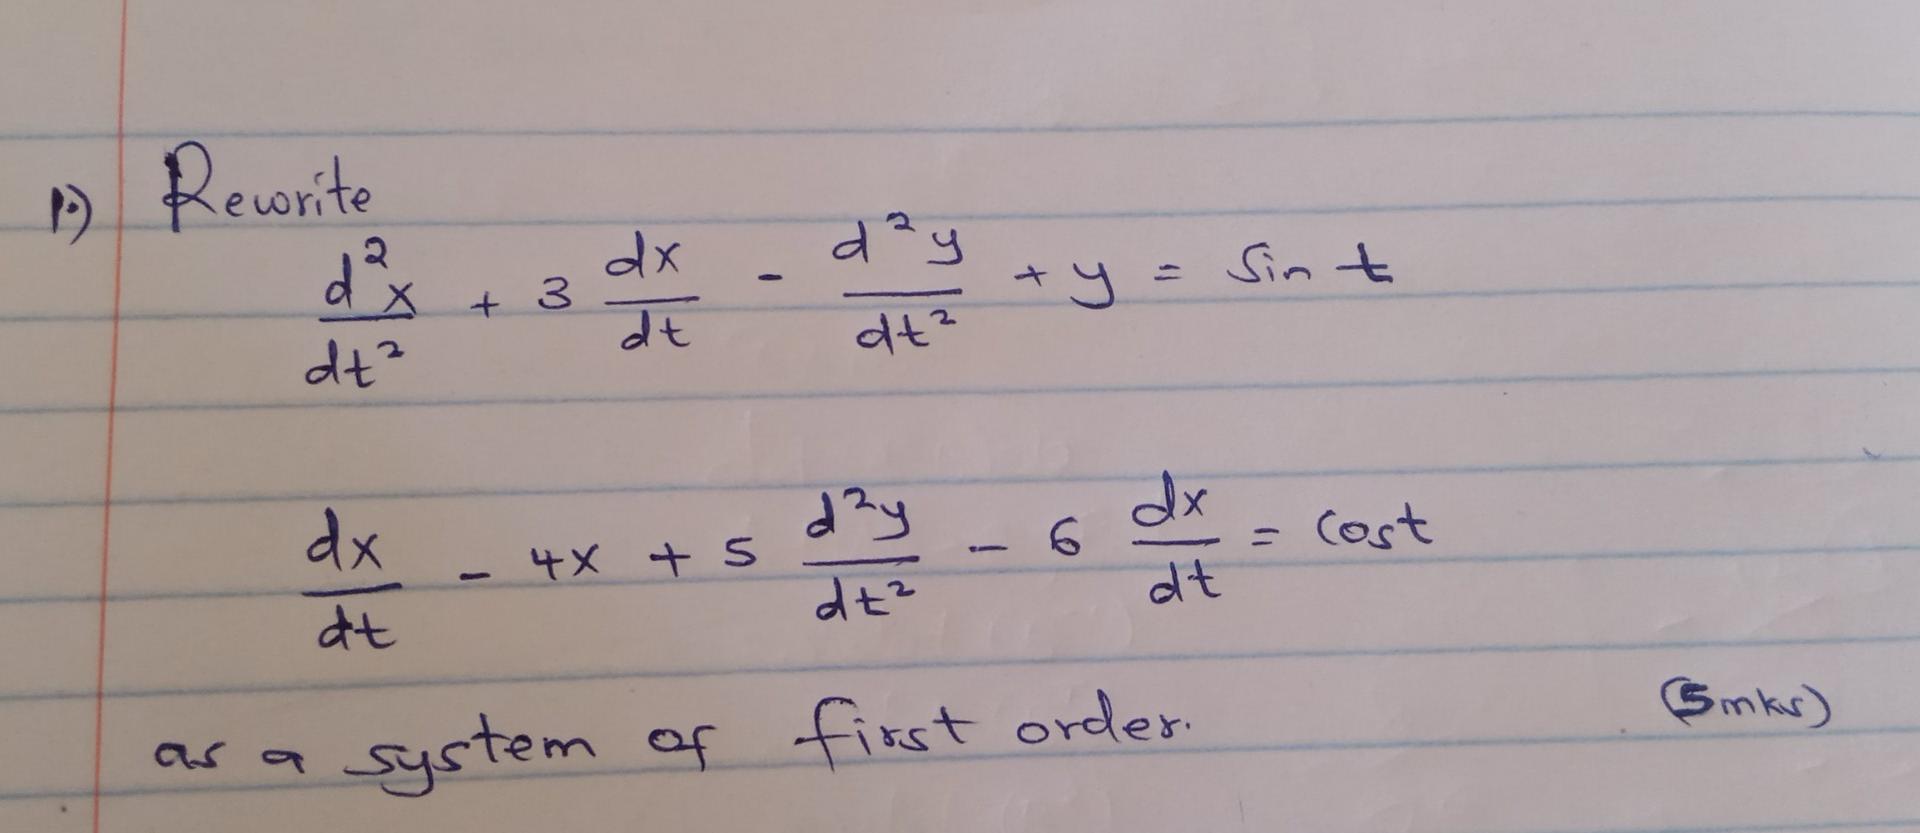 1.) Rewrite
d²x/dt² + 3 dx/dt - d²y/dt² + y = Sin t
dx/dt - 4x + 5 d²y/dt² - 6 dx/dt = Cost
as a system of first order. (5mks)